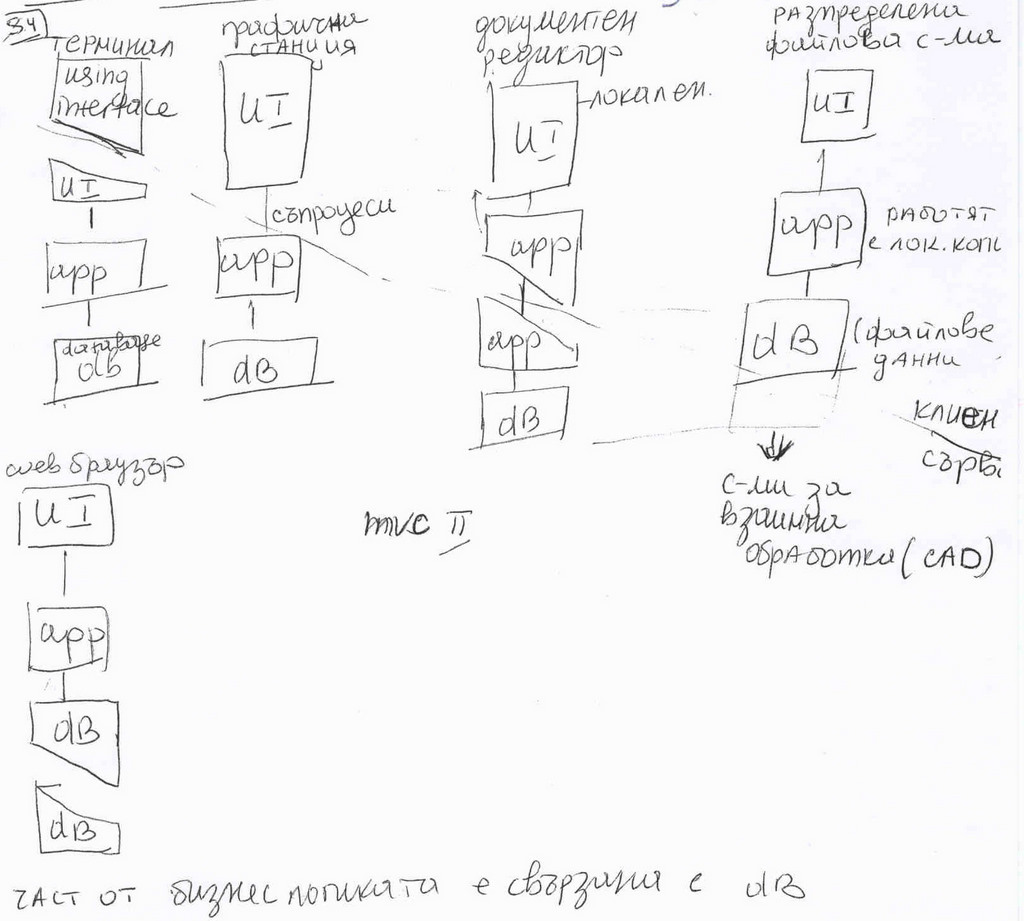 3.4)
терминал
using
interface
UI
app
database
db
графична
станция
UI
съпроцеси
app
dB
документен
редиктор
локален.
UI
app
app
dB
разпределена
файлова с-ма
UI
app
работят
с лок. копи
dB
(файлове
данни
клиен
сърв
с-ми за
взаимна
обработка (CAD)
web браузър
UI
app
dB
dB
mvc II
част от бизнес логиката е свързана с dB